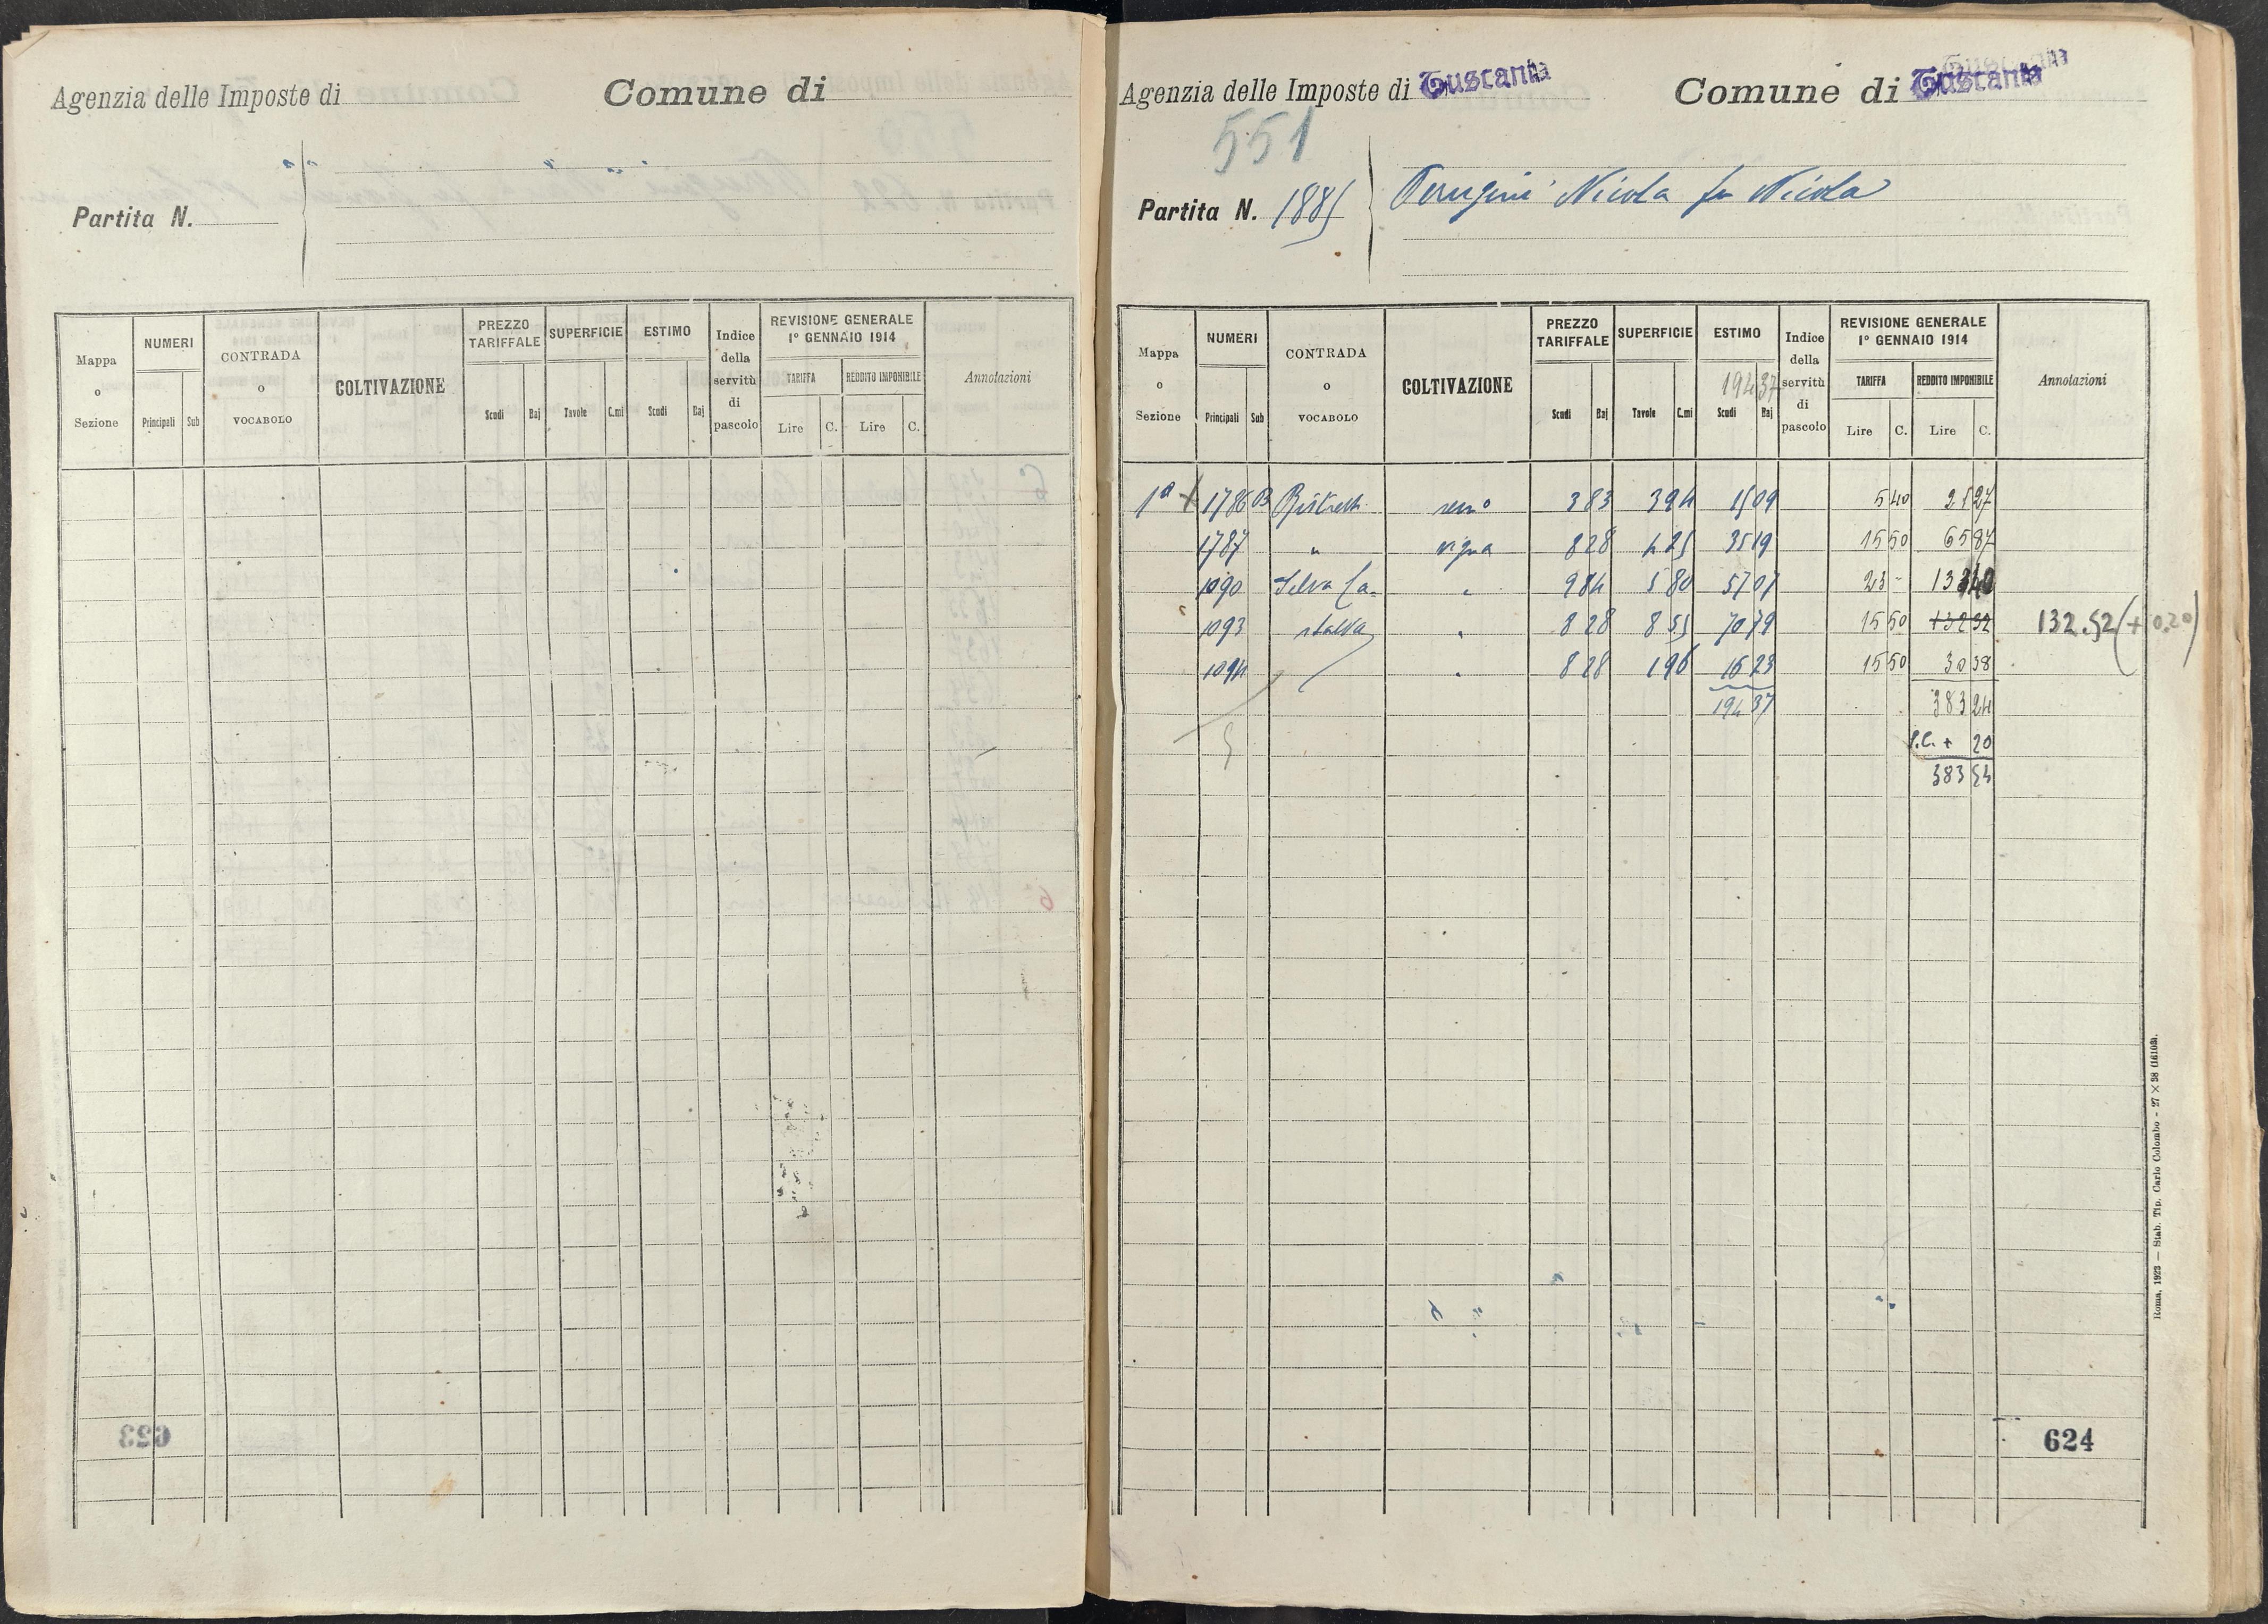 Agenzia delle Imposte di
Comune di
Partita N.
Mappa o Sezione
NUMERI
Principali
Sub
CONTRADA o VOCABOLO
COLTIVAZIONE
PREZZO TARIFFALE
Scudi
Baj
SUPERFICIE
Tavole
C.mi
ESTIMO
Scudi
Baj
Indice della servitù di pascolo
REVISIONE GENERALE
1° GENNAIO 1914
TARIFFA
REDDITO IMPONIBILE
Lire
C.
Lire
C.
Annotazioni
623
Agenzia delle Imposte di Tuscania
Comune di Tuscania
551
Partita N. 1885
Perugini Nicola fu Nicola
Mappa o Sezione
NUMERI
Principali
Sub
CONTRADA o VOCABOLO
COLTIVAZIONE
PREZZO TARIFFALE
Scudi
Baj
SUPERFICIE
Tavole
C.mi
ESTIMO
194 37
Scudi
Baj
Indice della servitù di pascolo
REVISIONE GENERALE
1° GENNAIO 1914
TARIFFA
REDDITO IMPONIBILE
Lire
C.
Lire
C.
Annotazioni
1ª + 1786 B semo 3 83 3 94 15 09 5 40 21 27
1787 " vigna 8 28 4 25 35 19 15 50 65 87
1090 Selva Ca- " 9 84 5 80 57 07 23 - 133 40
1093 stalda " 8 28 8 55 70 79 15 50 132 32 132.52 (+ 0.20)
1094 " 8 28 1 96 16 23 15 50 30 38
194 37 383 24
+ 20
383 54
Roma, 1923 — Stab. Tip. Carlo Colombo - 27 × 38 (16108).
624